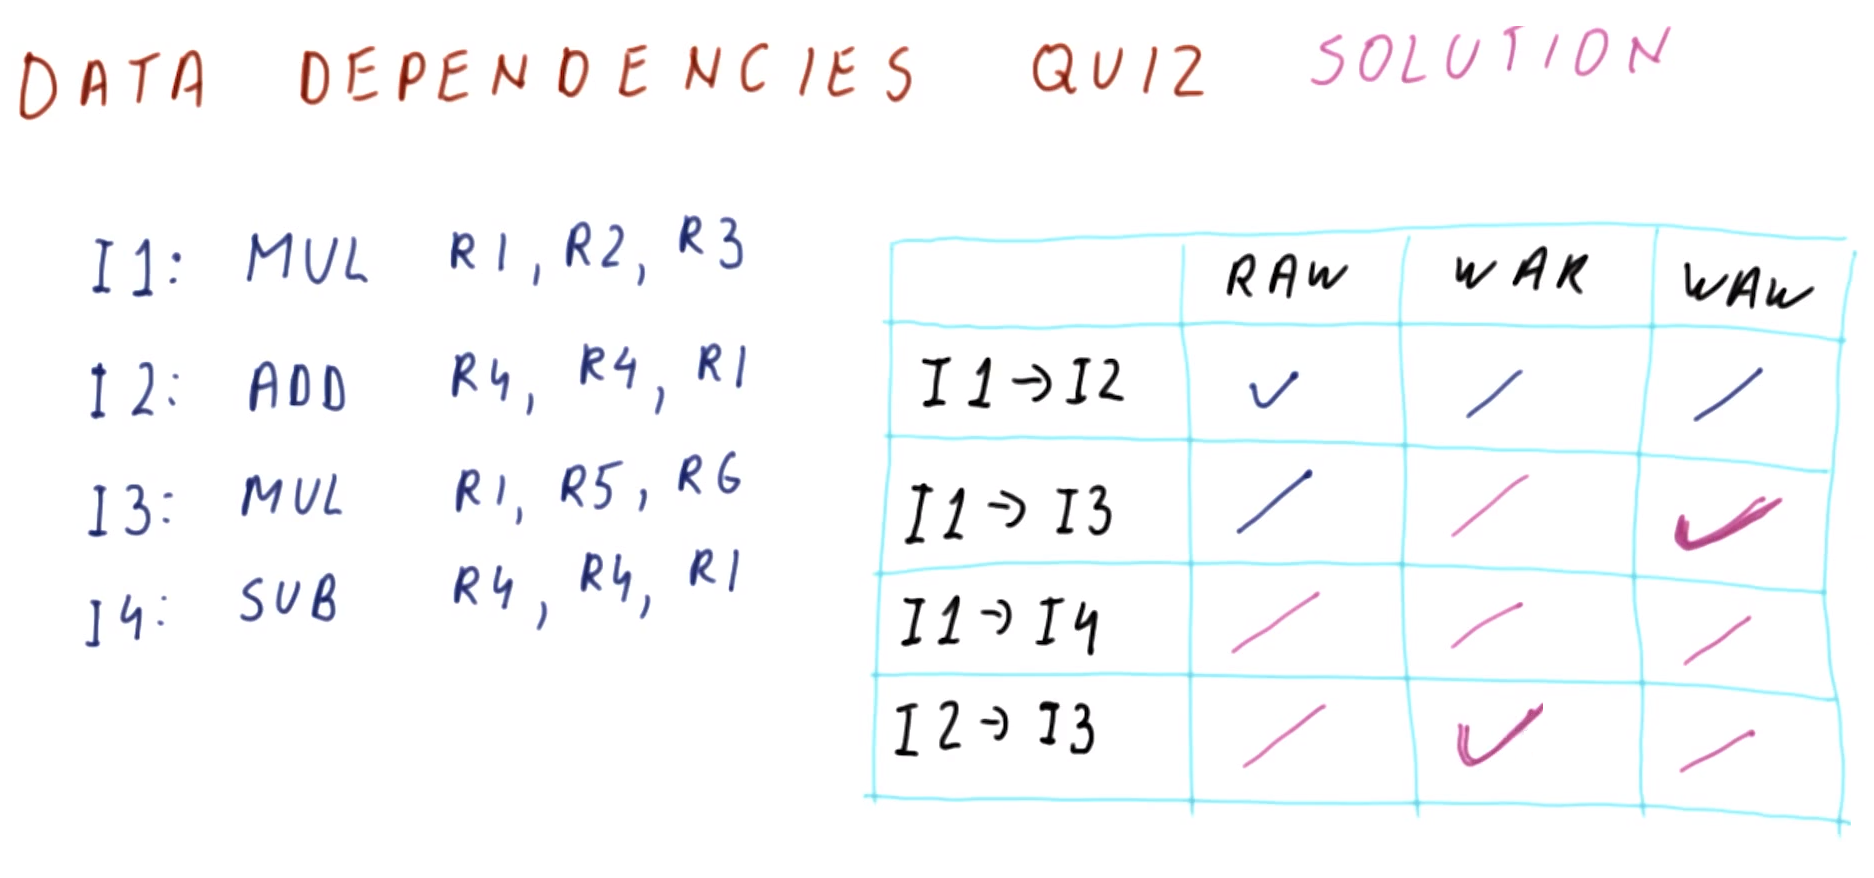 DATA DEPENDENCIES QUIZ SOLUTION
I1: MUL R1, R2, R3
I2: ADD R4, R4, R1
I3: MUL R1, R5, R6
I4: SUB R4, R4, R1
RAW WAR WAW
I1→I2 ✓ / /
I1→I3 / / ✓
I1→I4 / / /
I2→I3 / ✓ /